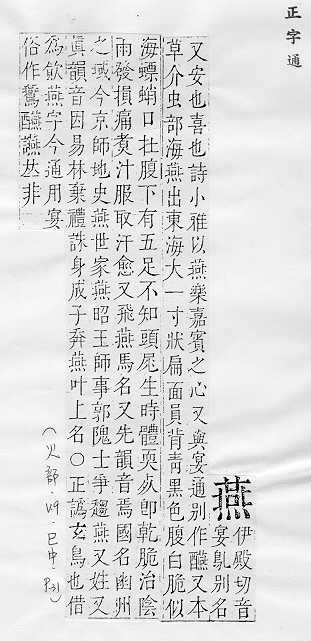 正字通
燕
伊殿切音
宴鳦別名
又安也喜也詩小雅以燕樂嘉賓之心又與宴通別作醼又本
草介虫部海燕出東海大一寸狀扁面員背青黑色腹白脆似
海螵蛸口在腹下有五足不知頭尾生時體耎死卽乾脆治陰
雨發損痛煑汁服取汗愈又飛燕馬名又先韻音焉國名幽州
之域今京師地史燕世家燕昭王師事郭隗士爭趨燕又姓又
眞韻音因易林棄禮誅身成子奔燕叶上名○正譌玄鳥也借
為飮燕字今通用宴
俗作鷰醼讌𠀤非
(火部·49·巳中·